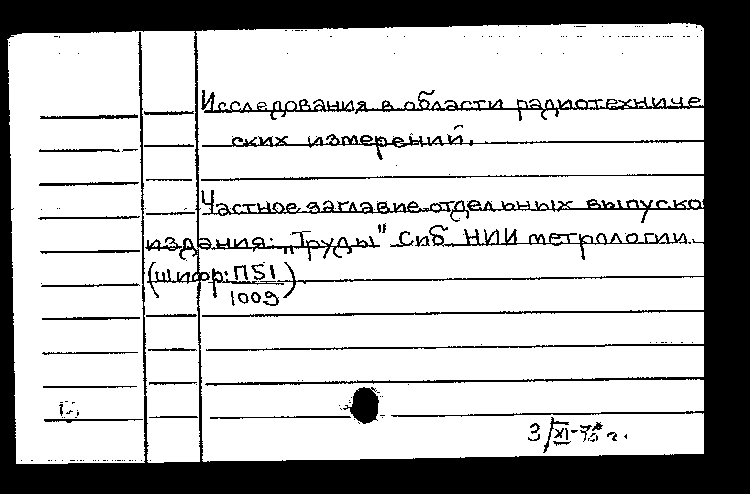 Исследования в области радиотехниче
ских измерений.
Частное заглавие отдельных выпуско
издания: „Труды" Сиб НИИ метрологии.
(шифр: П51
1009).
3/XI
г.